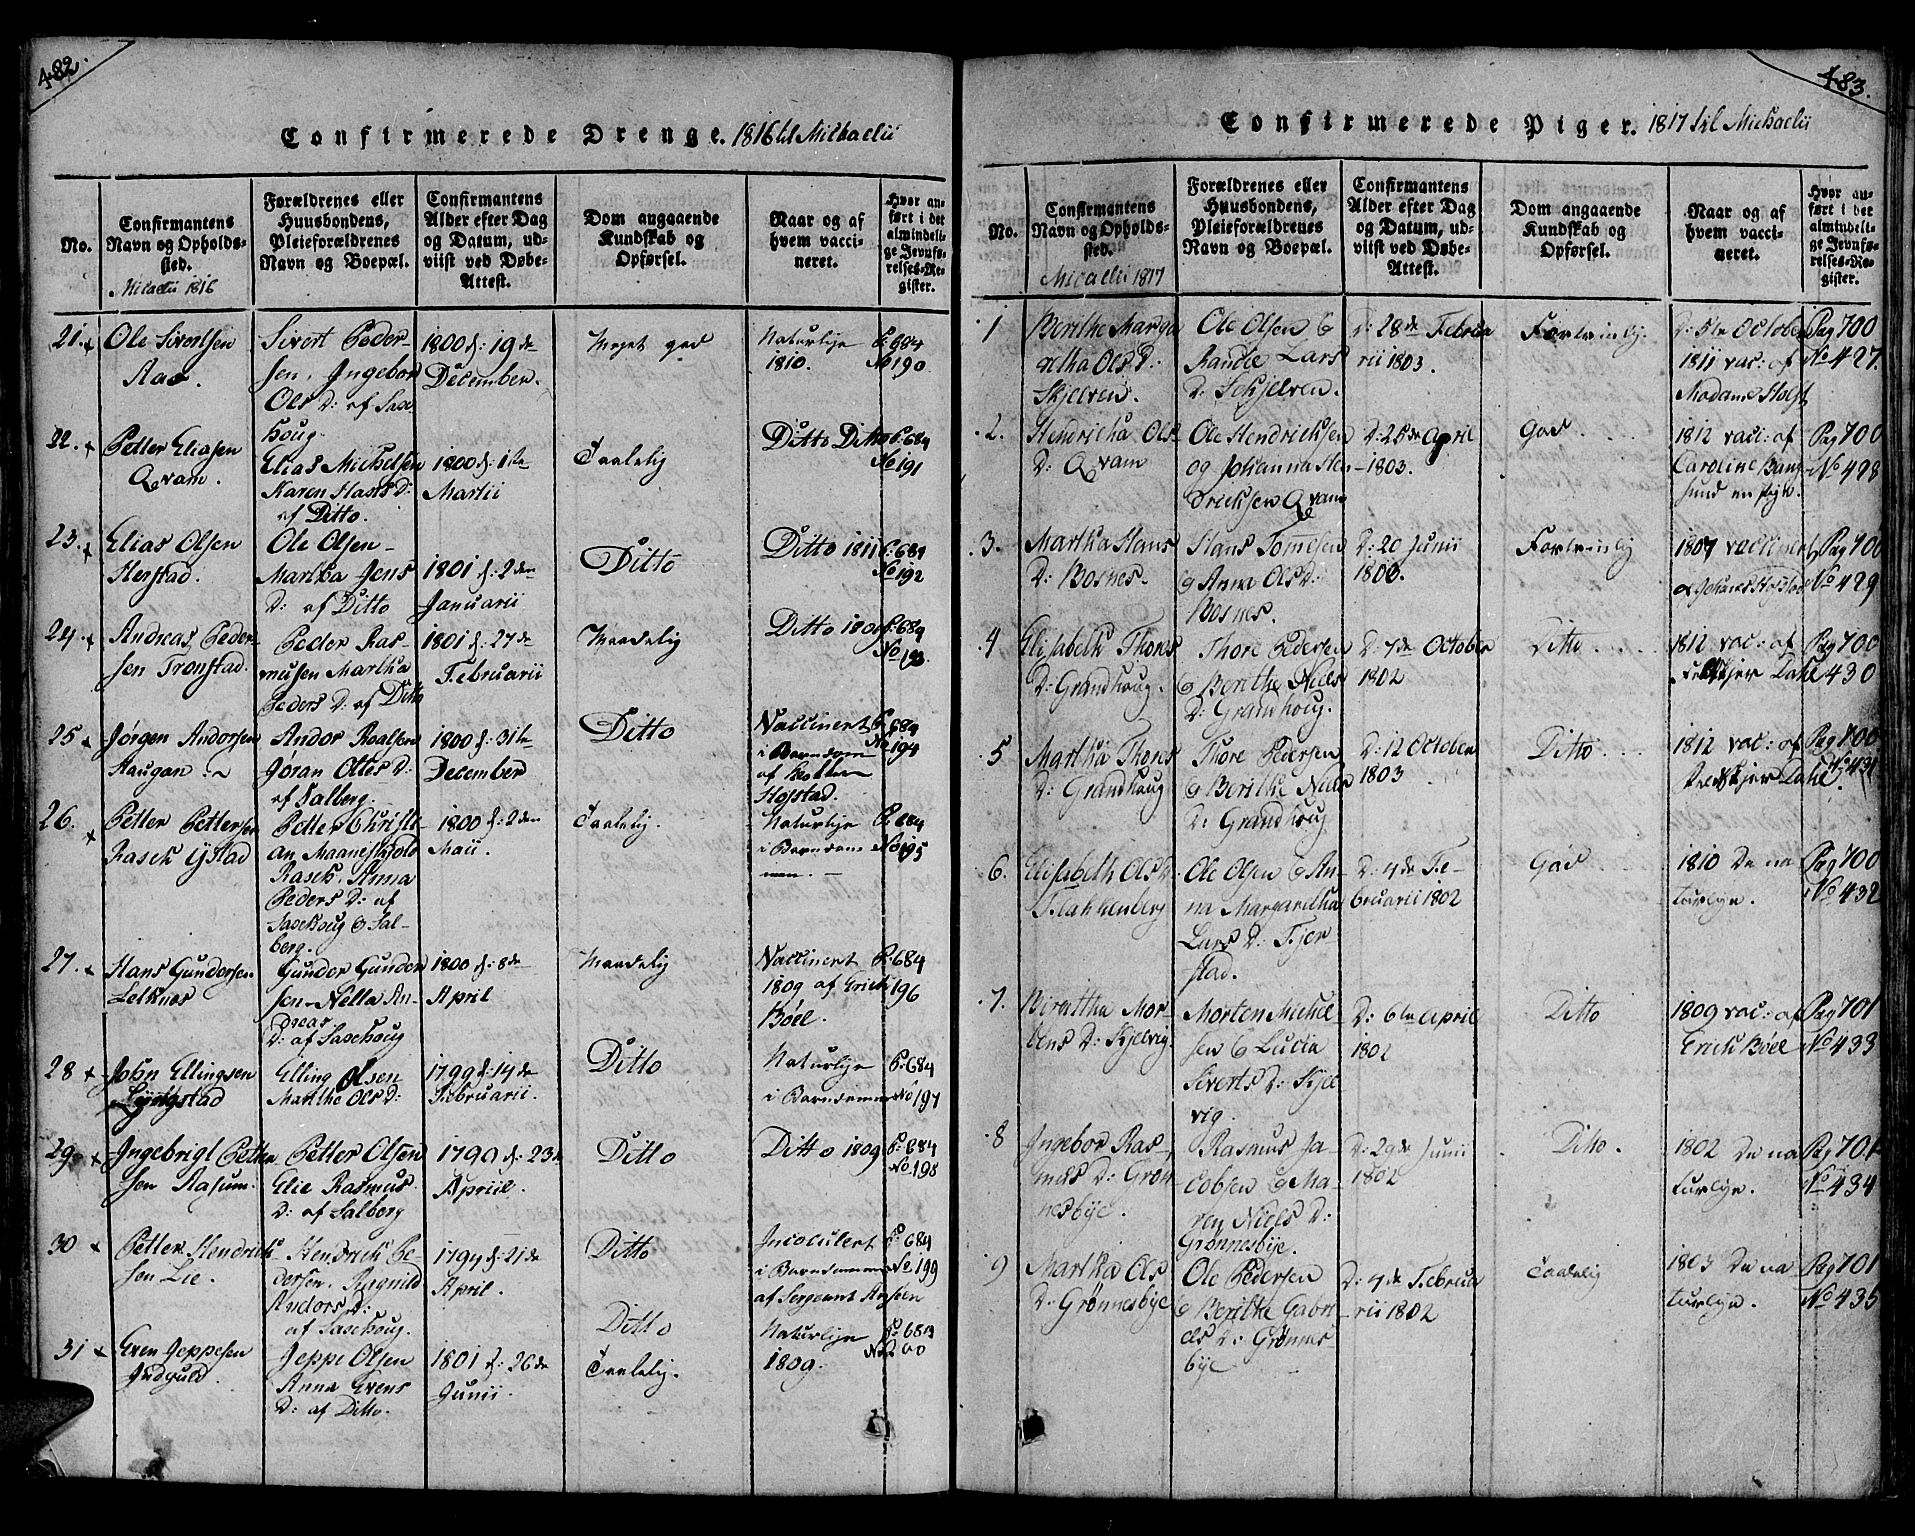 482.
Confirmerede Drenge. 1816 til Michaelii
No.
Confirmantens
Navn og Opholds-
sted.
Micaelii 1816
Forældrenes eller
Huusbondens,
Pleieforældrenes
Navn og Boepæl.
Confirmantens
Alder efter Dag
og Datum, ud-
viist ved Døbe-
Attest.
Dom angaaende
Kundskab og
Opførsel.
Naar og af
hvem vacci-
neret.
Hvor an-
ført i det
almindeli-
ge Jevnfø-
relses-Re-
gister.
21.
Ole Sivertsen
Aas.
Sivert Peder-
sen. Ingebor
Ols D: af Sax-
houg.
1800 d: 19de
December.
Meget god
Naturlige
1810.
P: 684
No 190
22.
Petter Eliasen
Qvam.
Elias Michelsen
Karen Hans D:
af Ditto.
1800 d: 1ste
Martii
Taalelig
Ditto Ditto
P: 684
No 191
23.
Elias Olsen
Herstad.
Ole Olsen
Martha Jens
D: af Ditto
1801 d: 2den
Januarii
Ditto
Ditto 1811
P: 684
No 192
24.
Andreas Peder-
sen Tronstad.
Peder Ras-
musen Martha
Peders D: af Ditto
1801 d: 27de
Februarii
Maadelig
Ditto 1809
P: 684
No 193.
25
Jørgen Andorsen
Haugan
Andor Roalsen
Jøran Oles D:
af Salberg.
1800 d: 31te
December
Ditto
Vaccinert
i Barndom
af
Hofstad.
P. 684
No 194
26.
Petter Pettersen
Rasch Ystad
Petter Christi-
an Maaneskjold
Rasch. Anna
Peders D: af
Saxhoug & Sal-
berg.
1800 d: 2den
Maii.
Taalelig.
Naturlige
i Barndom-
men.
P: 684
No 195
27.
Hans Gundersen
Leknes
Gunder Gunder
sen - Nella An-
dreas
D: af Saxhoug
1800 d: 8de
April
Maadelig
Vaccinert
1809 af Erich
Bøel.
P. 684
196
28
John Ellingsen
Lyngstad
Elling Olsen
Marthe Ols D:
1799 d: 14de
Februarii.
Ditto
Naturlige
i Barndommen
P: 684
No 197
29.
Ingebrigt Petter
sen Aasum.
Petter Olsen
Elie Rasmus
D: af Salberg
1790 d: 23de
Apriil.
Ditto
Ditto 1809
P: 684
No 198
30
Petter Hendrich
sen Lie.
Hendrich Pe-
dersen. Ragnild
Andors D:
af Saxhoug.
1797 d: 21de
April.
Ditto
Inoculert
i Barndommen
af Sergeant
P: 684
No 199
Ditto
31
Even Jeppesen
Indguld.
Jeppe Olsen
Anna Evens
D: af Ditto.
1801 d: 26de
Junii.
Taalelig.
Naturlige
1809.
483.
Confirmerede Piger. 1817 til Michaelii
No.
Confirmantens
Navn og Opholds-
sted.
Micaelii 1817
Forældrenes eller
Huusbondens,
Pleieforældrenes
Navn og Boepæl.
Confirmantens
Alder efter Dag
og Datum, ud-
viist ved Døbe-
Attest.
Dom angaaende
Kundskab og
Opførsel.
Naar og af
hvem vacci-
neret.
Hvor an-
ført i det
almindeli-
ge Jevnfø-
relses-Re-
gister.
1
Berithe Marga
retha Ols D:
Skjelven.
Ole Olsen &
Randi Lars
D: Schjelven.
D: 28de Februa
rii 1803.
Fortrinlig.
D: 5te October
1811 vac: af
Madame Holst
Pag 700
No 427.
2.
Hendricha Ols
D: Qvam
Ole Hendrichsen
og Johanna Hen
drichsen Qvam
D: 25de April
1803.
God
1812 vac: af
Caroline Bang
sund en Pige.
Pag 700
No 428
3.
Martha Hans
D: Bosnes.
Hans Tomesen
& Anna Ols D:
Bosnes.
D: 20 Junii
1803.
Fortrinlig
1807 vaccinert
af Johanes Hofstad
Pag 700
No 429
4
Elisabeth Thores
D: Grandhoug.
Thore Pedersen
& Berithe Niels
D: Grandhoug.
D: 7de October
1802
Ditto
1812 vac: af
Feldskjer Dahl
Pag 700
430
5
Martha Thores
D: Grandhoug
Thore Pedersen
& Berithe Niels
D: Grandhoug
D: 12 October
1803
Ditto
1812 vac: af
Feldskjer Dahl
Pag 700.
No 431
6.
Elisabeth Ols D:
Flakkenberg
Ole Olsen & An-
na Margaretha
Lars D: Fjer
stad.
D: 4de Fe-
bruarii 1802
God
1810 De na
turlige.
Pag 700
No 432
7.
Birattha Mor-
tens D: Kjelvig
Morten Michel-
sen & Lucia
Siverts D: Kjel-
vig.
D: 6te April
1802
Ditto
1809 vac: af
Erich Bøel
Pag 701
No 433
8
Ingebor Ras-
mus D: Grøn
nesbye.
Rasmus Ja-
cobsen & Ma-
ren Niels D:
Grønnesbye.
D: 29de Junii
1802
Ditto.
1802 De na
turlige.
Pag 701
No 434
9
Martha Ols
D: Grønnesbye
Ole Pedersen
& Berithe Gabri-
els D: Grønnes
bye
D: 4de Februa
rii 1802
Taalelig
1803 De na
turlige.
Pag 701
No 435